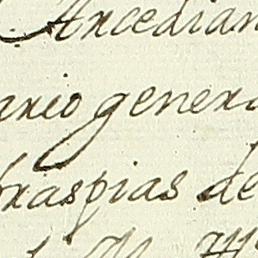 Arcedian
ario genera
braspias de